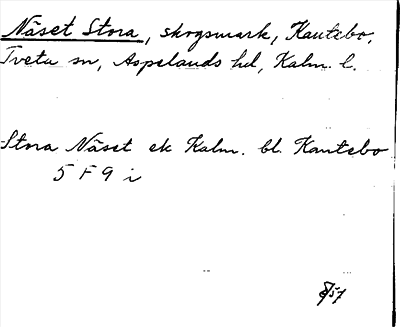 Näset Stora, skogsmark, Kantebo,
Tveta sn, Aspelands hd, Kalm. l.
Stora Näset ek Kalm. bl. Kantebo
5 F 9 i